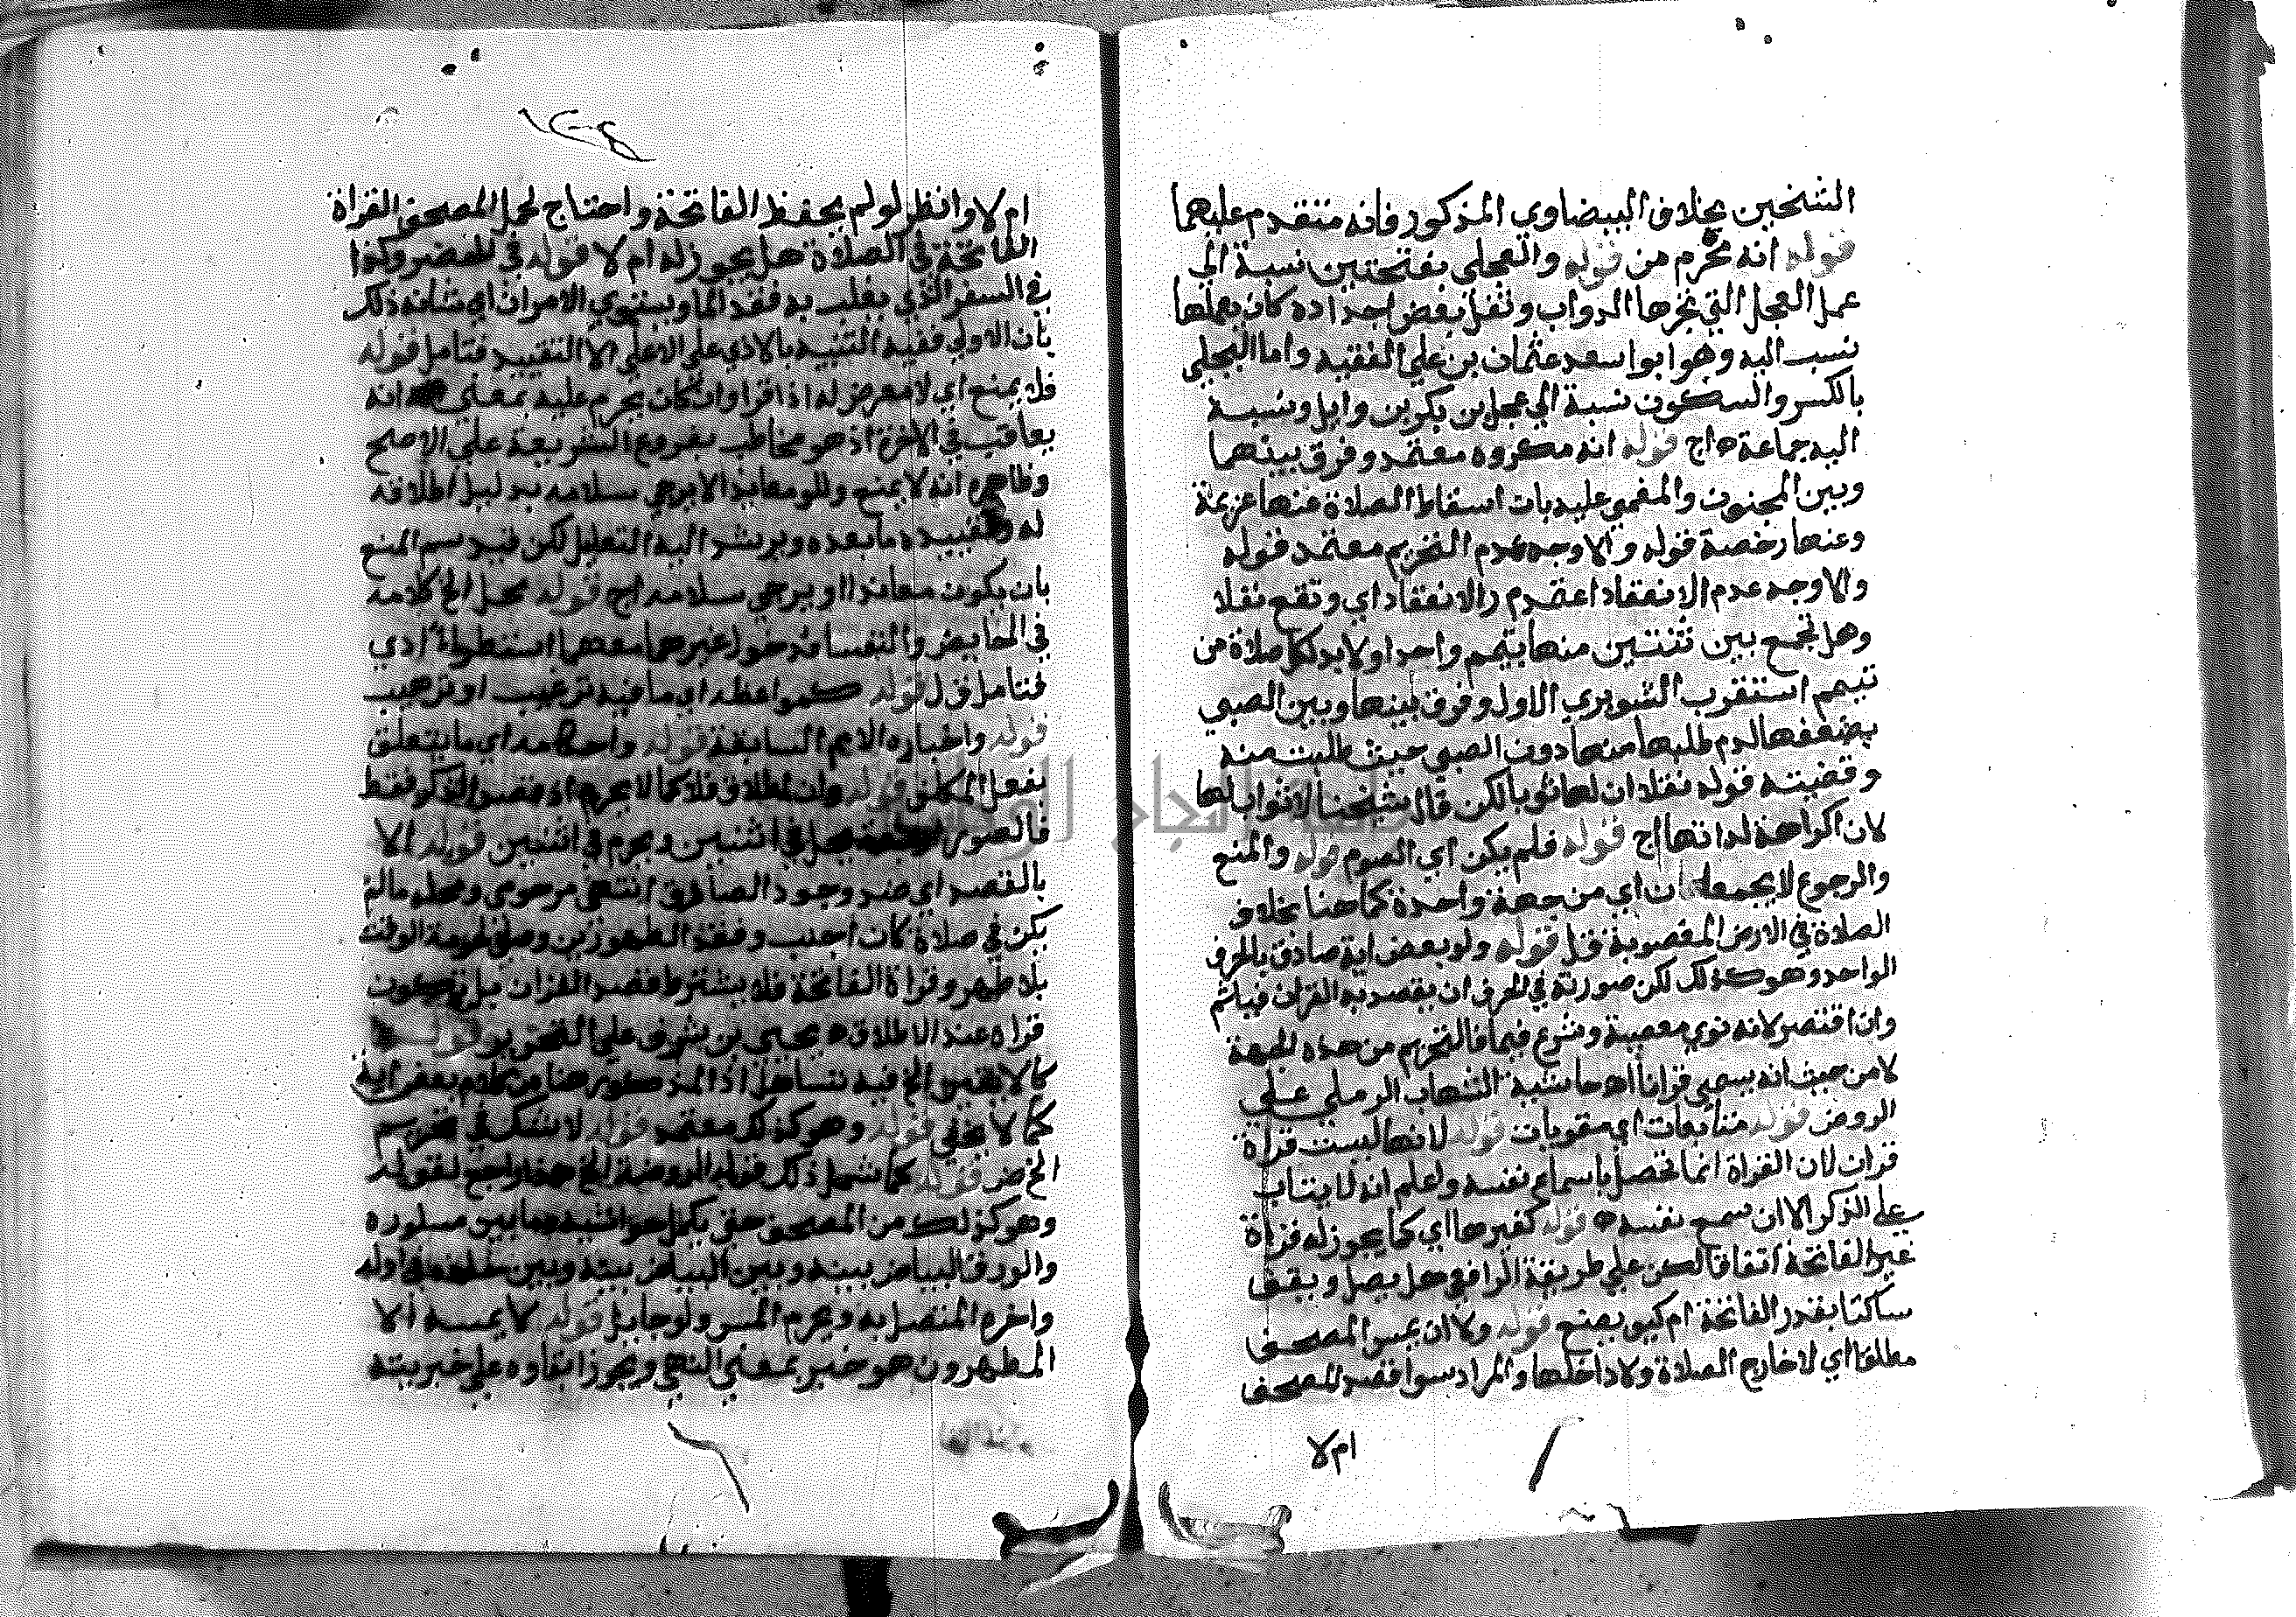 الشخين بخلاف البيضاوي المذكور فانه متقدم عليهما
قوله انه محرم من قوله والعجلي بفتحتين نسبة الي
عمل العجل التي تجرها الدواب ونقل بعض اجداده كان يعملها
نسب اليه وهو ابوا سعد عثمان بن علي الفقيه واما العجلي
بالكسر والسكون نسبة الي عجل بن بكر بن وايل ونسبة
اليه جماعة اج قوله انه مكروه معتمد وفرق بينهما
وبين المجنون والمغمي عليه بان اسقاط الصلاة عنها عزيمة
وعنهما رخصة قوله والاوجه عدم التحريم معتمد قوله
والاوجه عدم الانعقاد اعتمد م ر الانعقاد اي وتقع نفلا
وهل تجمع بين ثنتين منها بتيمم واحد اولابد لكل صلاة من
تيمم استقرب الشوبري الاول وفرق بينها وبين الصبي
بضعفها لدم طلبها منها دون الصبي حيث طلبت منه
وقضيته قوله نفلا ان لها ثوابا لكن قال شيخنا لا ثواب لها
لان الكراهة لذاتها اج قوله فلم يكن اي الصوم قوله والمنع
والرجوع لا يجمعان اي من جهة واحدة كما هنا بخلاف
الصلاة في الارض المغصوبة ق ل قوله ولو بعض اية صادق بالحرف
الواحد وهو كذلك لكن صورته في الحرف ان يقصد به القران فياثم
وان اقتصر لانه نوي معصية وشرع فيها فالتحريم من هذه الجهة
لا من حيث انه يسمي قرانا اه حاشية الشهاب الرملي علي
الروض قوله متتابعات اي قوله لانها ليست قراة
قران لان القراة انما تحصل باسماع نفسه واعلم انه لا يثاب
علي الذكر الا ان سمع نفسه قوله كغيرها اي كما يجوز له قراة
غير الفاتحة اتفاقا لكن علي طريقة الرافعي هل يصل ويقف
ساكتا بقدر الفاتحة ام كيف يصنع قوله ولا ان يمس المصحف
مطلقا اي لا خارج الصلاة ولا داخلها والمراد سوا قصد للمصحف
ام لا
ام لا وانظر لو لم يحفظ الفاتحة واحتاج لحمل المصحف لقراة
الفاتحة في الصلاة هل يجوز له ام لا قوله في الحضر وكذا
في السفر الذي يغلب به فقد الما ويستوي الامران اي شانه ذلك
بان الاولي ففيه التنبيه بالادني علي الاعلي لا التقييد فتامل قوله
فلا يمنع اي لا نعرض له اذا قرا وان كان يحرم عليه بمعني انه
يعاقب في الاخرة اذ هو مخاطب بفروع الشريعة علي الاصح
وظاهره انه لا يمنع ولو معاندا لا يرجي سلامه بدليل اطلاقه
له وتقييده ما بعده ويرشد اليه التعليل لكن قيد سم المنع
بان يكون معاندا او يرجي سلامه اج قوله محل الخ كلامه
في الحايض والنفسا فدخول غيرهما معهما استطراد
فتامل ق ل قوله كمواعظه اي ما فيه ترغيب او ترهيب
قوله واخباره الامم السابقة قوله واحكامه اي ما يتعلق
بفعل المكلف قوله وان اطلق فلا كما لا يحرم اذ قصد الذكر فقط
فالصور اربعة يحل في اثنين ويحرم في اثنين قوله الا
بالقصد اي عند وجود الصارف انتهي مرحومي ومحله مالم
يكن في صلاة كان اجنب وفقد الطهورين وصلي لحرمة الوقت
بلا طهر وقراة الفاتحة فلا يشترط قصد القران بل تكون
قراه عند الاطلاق يحيي بن شرف علي التحرير قوله
كما لا يخفي الخ فيه تساهل اذ المذكور هنا من بعض اية
كما لا يخفي قوله وهو كذلك معتمد قوله لا شك في تحريم
الخ ض قوله كما شمل ذلك قوله الروضة الخ هذا راجع لقوله
وهو كذلك من المصحف حتي يكره حواشيه وما بين سطوره
والورق البياض بينه وبين البياض بينه وبين جلده في اوله
واخره المتصل به ويحرم المس ولو حايل قوله لا يمسه الا
المطهرون هو خبر بمعني النهي ويجوز ابقاوه علي خبريته